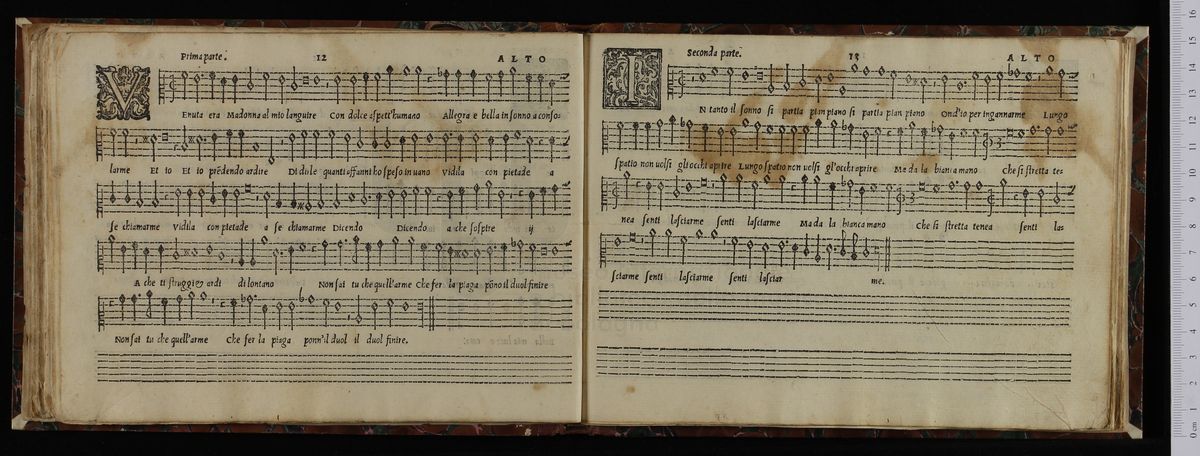 Prima parte. 12 ALTO
VEnuta era Madonna al mio languire Con dolce aspett'humano Allegra e bella in sonno a conso:
larme Et io Et io prẽdendo ardire Di dirle quanti affanni ho speso in uano Vidila con pietade a
se chiamarme Vidila con pietade a se chiamarme Dicendo Dicendo a che sospire ij
A che ti struggi & ardi di lontano Non sai tu che quell'arme Che fer la piaga põno il duol finire
Non sai tu che quell'arme Che fer la piaga ponn'il duol il duol finire.
Seconda parte. 13 ALTO
IN tanto il sonno si partia pian piano si partia pian piano Ond'io per ingannarme Lungo
spatio non uolsi gl'occhi aprire Lungo spatio non uolsi gl'occhi aprire Ma da la bianca mano Che si stretta te:
nea senti lasciarme senti lasciarme Ma da la bianca mano Che si stretta tenea senti las
sciarme senti lasciarme senti lasciar me.
0 cm 1 2 3 4 5 6 7 8 9 10 11 12 13 14 15 16